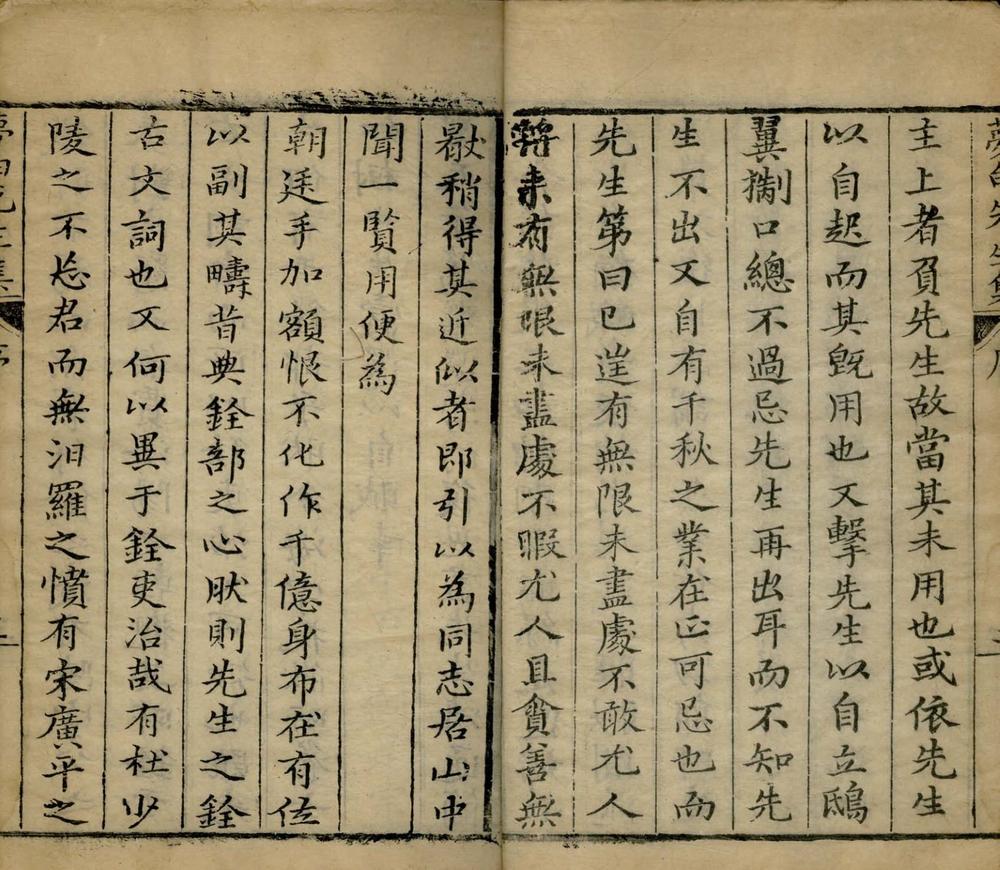 主上者負先生故當其未用也或依先生
以自起而其旣用也又擊先生以自立鴟
翼掣口總不過忌先生再出耳而不知先
生不出又自有千秋之業在正可忌也而
先生第曰已逞有無限未盡處不敢尤人
將來有無限未盡處不暇尤人且貪善無
厭稍得其近似者即引以為同志居山中
聞一賢用便為
朝廷手加額恨不化作千億身布在有位
以副其疇昔典銓部之心肰則先生之銓
古文詞也又何以異于銓吏治哉有杜少
陵之不忘君而無汨羅之憤有宋廣平之